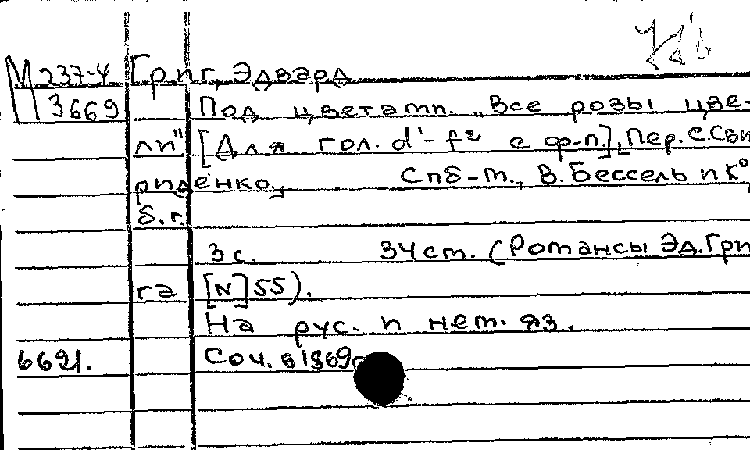 М 237-4 Григ, Эдвард
3669 Под цветами. „Все розы цве-
ли" [Для гол. d¹-f² с ф-п.], Пер. С. Сви-
риденко, Спб-М., В. Бессель и К°,
б.г.
3 с. 34 ст. (Романсы Эд. Гри-
га [N] 55).
На рус. и нем. яз.
6621. Соч. в 1869г